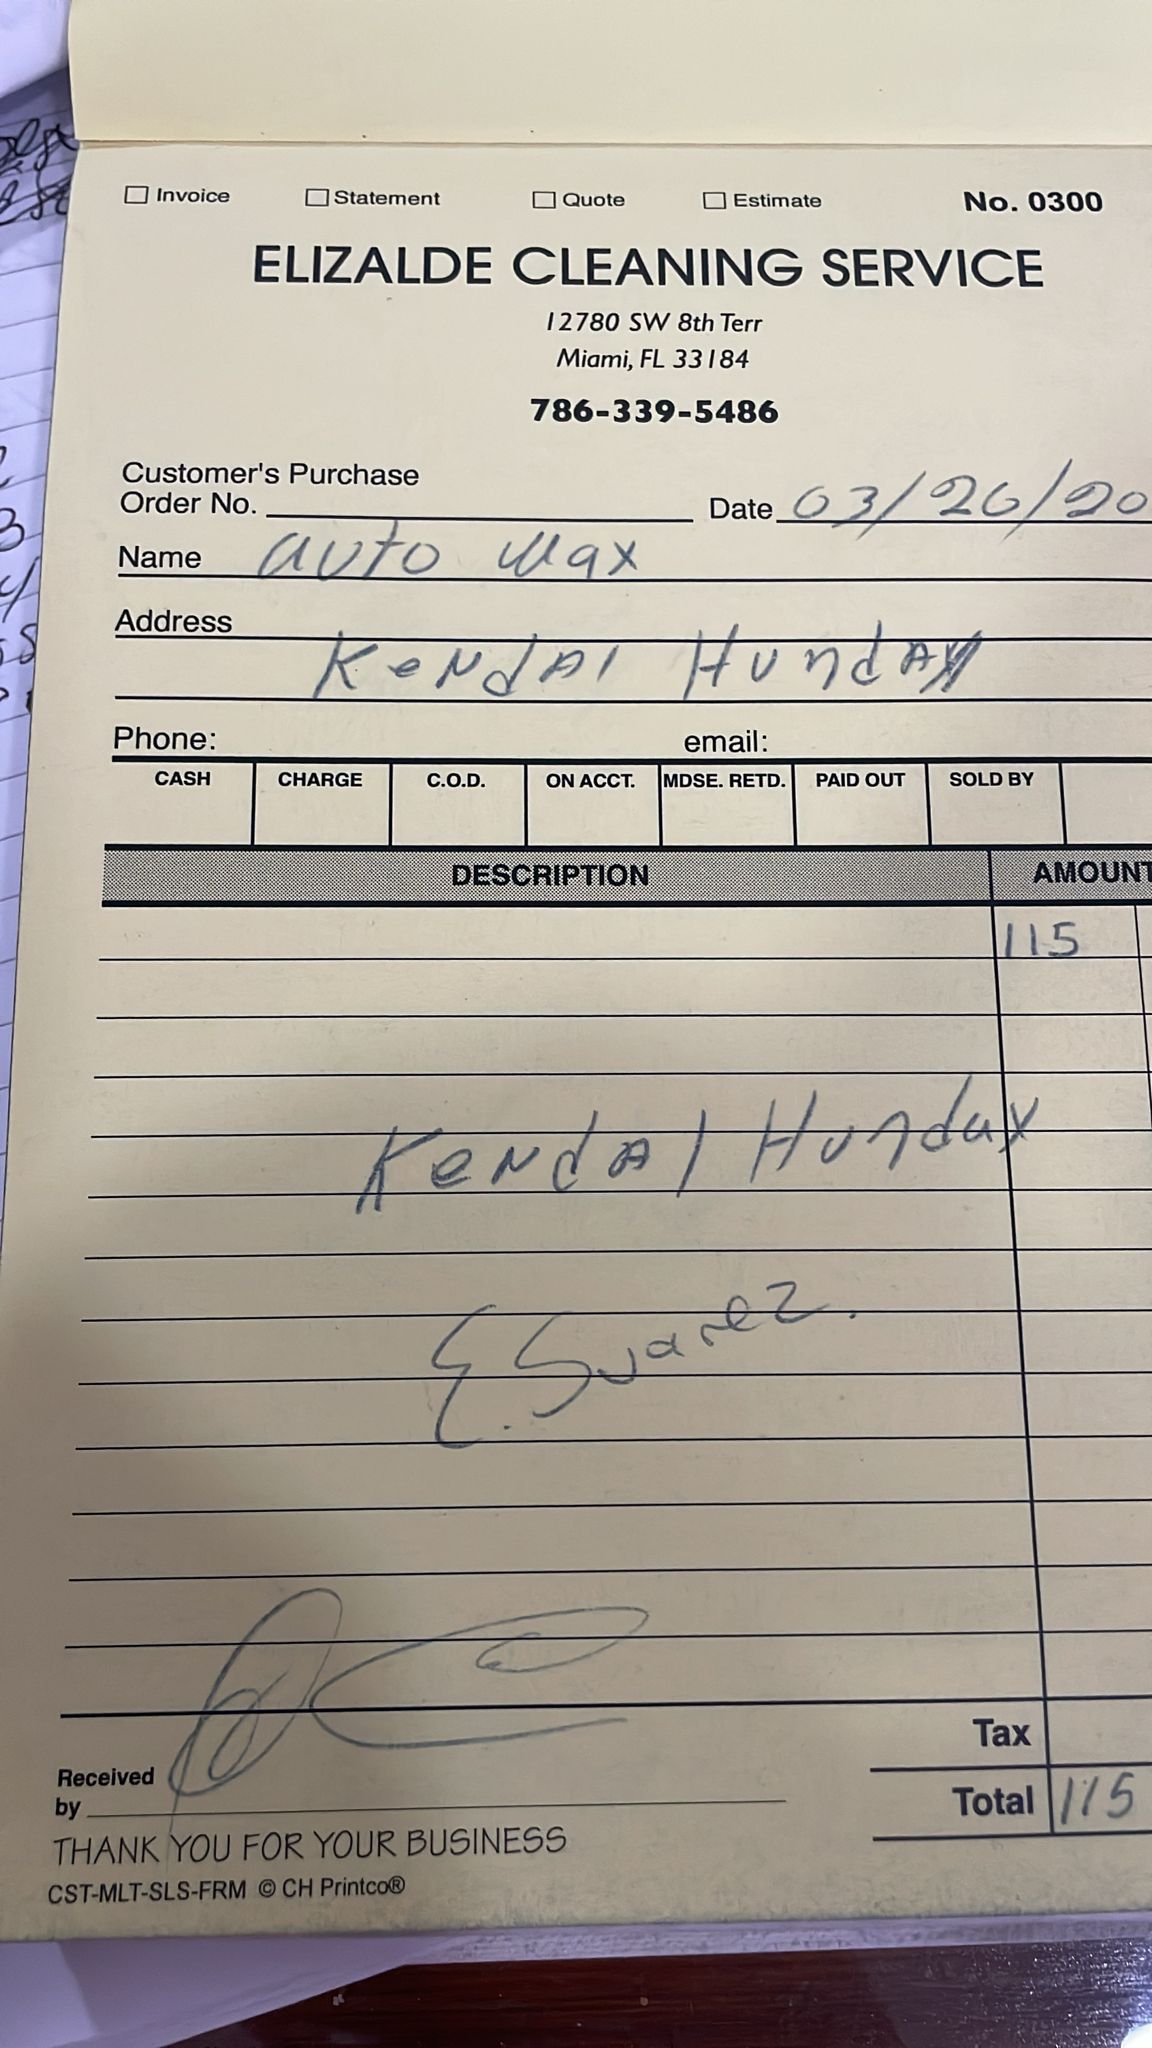 Invoice Statement Quote Estimate No. 0300
ELIZALDE CLEANING SERVICE
12780 SW 8th Terr
Miami, FL 33184
786-339-5486
Customer's Purchase
Order No. Date 03/26/20
Name auto Max
Address
Kendal Hunday
Phone: email:
CASH CHARGE C.O.D. ON ACCT. MDSE. RETD. PAID OUT SOLD BY
DESCRIPTION AMOUNT
115
Kendal Hunday
E. Suarez.
Tax
Received
by
Total 115
THANK YOU FOR YOUR BUSINESS
CST-MLT-SLS-FRM © CH Printco®